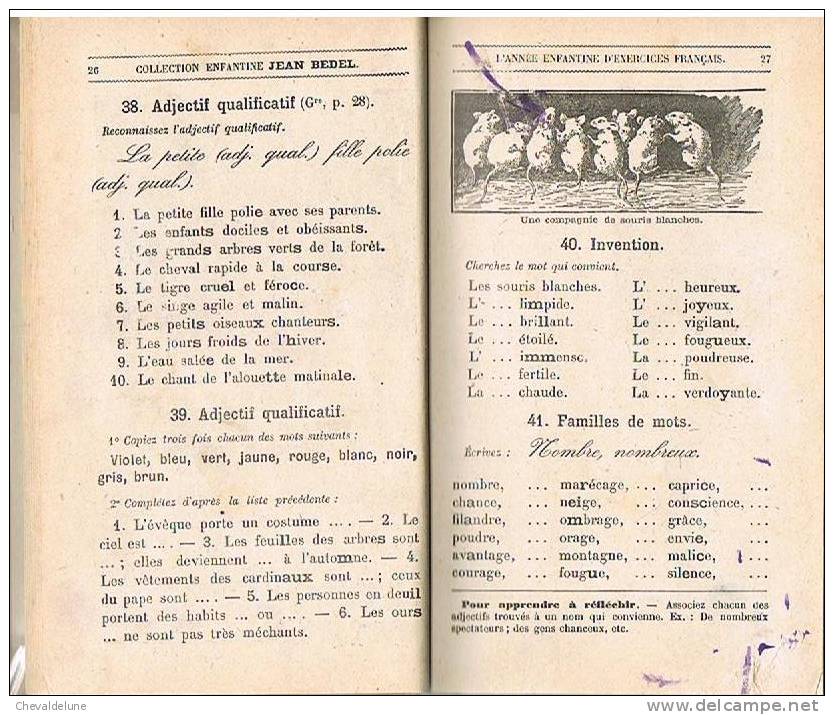 26 COLLECTION ENFANTINE JEAN BEDEL.
38. Adjectif qualificatif (Gre, p. 28).
Reconnaissez l'adjectif qualificatif.
La petite (adj. qual.) fille polie
(adj. qual.).
1. La petite fille polie avec ses parents.
2 Les enfants dociles et obéissants.
3 Les grands arbres verts de la forêt.
4. Le cheval rapide à la course.
5. Le tigre cruel et féroce.
6. Le singe agile et malin.
7. Les petits oiseaux chanteurs.
8. Les jours froids de l'hiver.
9. L'eau salée de la mer.
10. Le chant de l'alouette matinale.
39. Adjectif qualificatif.
1º Copiez trois fois chacun des mots suivants :
Violet, bleu, vert, jaune, rouge, blanc, noir,
gris, brun.
2º Complétez d'après la liste précédente :
1. L'évêque porte un costume .... — 2. Le
ciel est .... — 3. Les feuilles des arbres sont
...; elles deviennent ... à l'automne. — 4.
Les vêtements des cardinaux sont ...; ceux
du pape sont .... — 5. Les personnes en deuil
portent des habits ... ou .... — 6. Les ours
... ne sont pas très méchants.
L'ANNÉE ENFANTINE D'EXERCICES FRANÇAIS. 27
Une compagnie de souris blanches.
40. Invention.
Cherchez le mot qui convient.
Les souris blanches. L' ... heureux.
L' ... limpide. L' ... joyeux.
Le ... brillant. Le ... vigilant.
Le ... étoilé. Le ... fougueux.
L' ... immense. La ... poudreuse.
Le ... fertile. Le ... fin.
La ... chaude. La ... verdoyante.
41. Familles de mots.
Écrivez : Nombre, nombreux.
nombre, ... marécage, ... caprice, ...
chance, ... neige, ... conscience, ...
filandre, ... ombrage, ... grâce, ...
poudre, ... orage, ... envie, ...
avantage, ... montagne, ... malice, ...
courage, ... fougue, ... silence, ...
Pour apprendre à réfléchir. — Associez chacun des
adjectifs trouvés à un nom qui convienne. Ex. : De nombreux
spectateurs ; des gens chanceux, etc.
Chevaldelune
www.delcampe.net